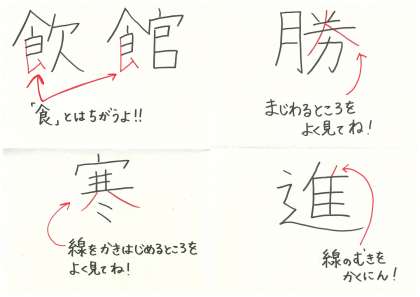 飲 館
「食」とはちがうよ!!
勝
まじわるところを
よく見てね!
寒
線をかきはじめるところを
よく見てね!
進
線のむきを
かくにん!